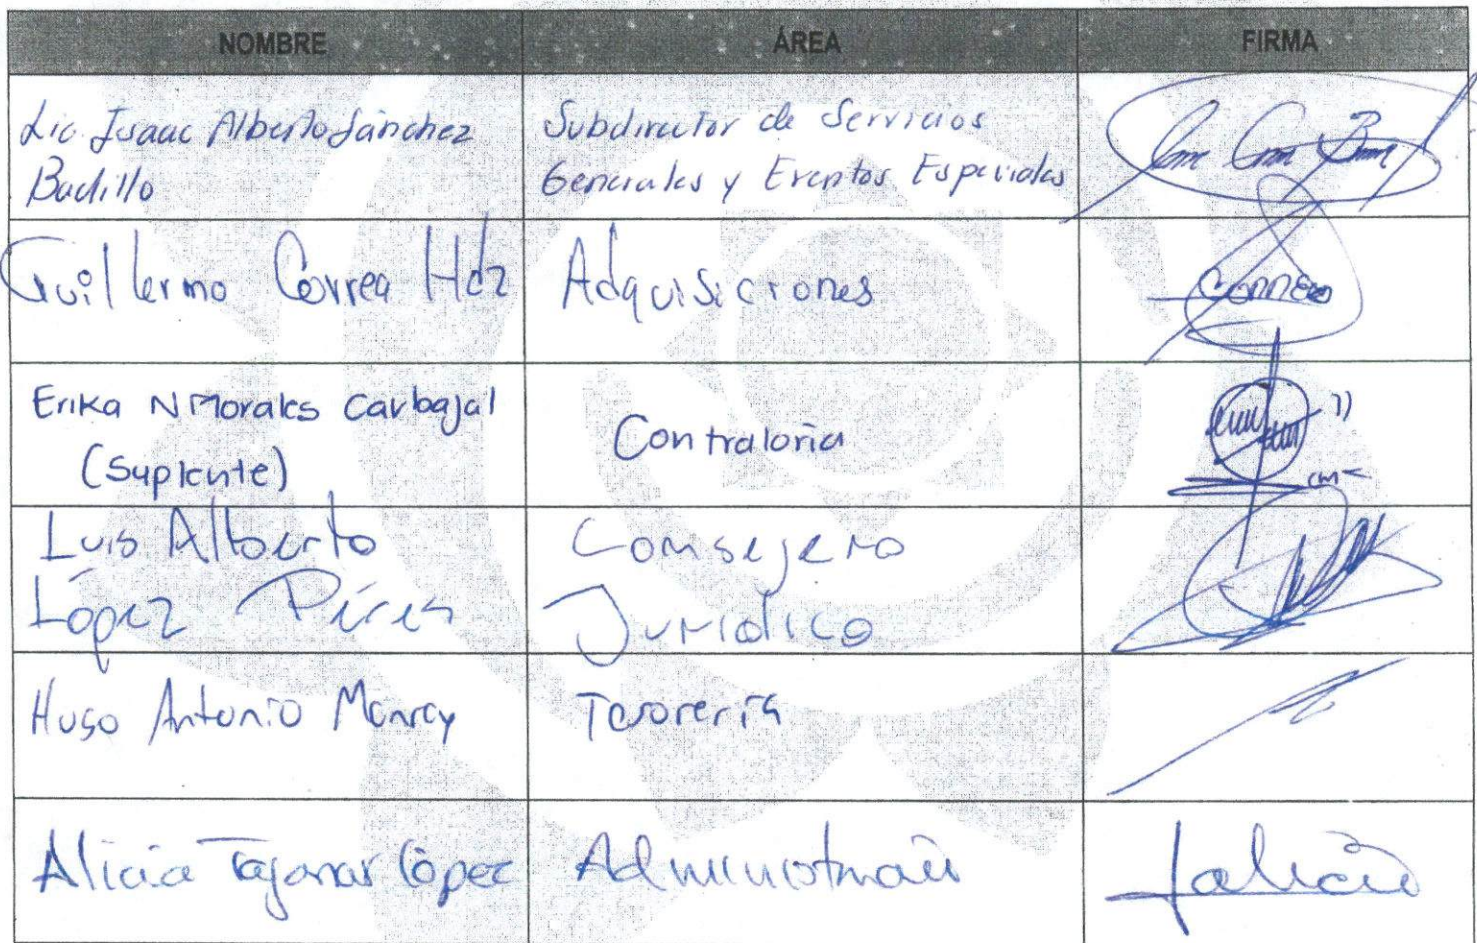 NOMBRE ÁREA FIRMA
Lic. Isaac Alberto Sánchez
Badillo
Subdirector de Servicios
Generales y Eventos Especiales
Guillermo Correa Hdz
Adquisiciones
Correa
Erika N Morales Carbajal
(Suplente)
Contraloria
Luis Alberto
López Pérez
Consejero
Jurídico
Hugo Antonio Monroy
Tesorería
Alicia López
Administración